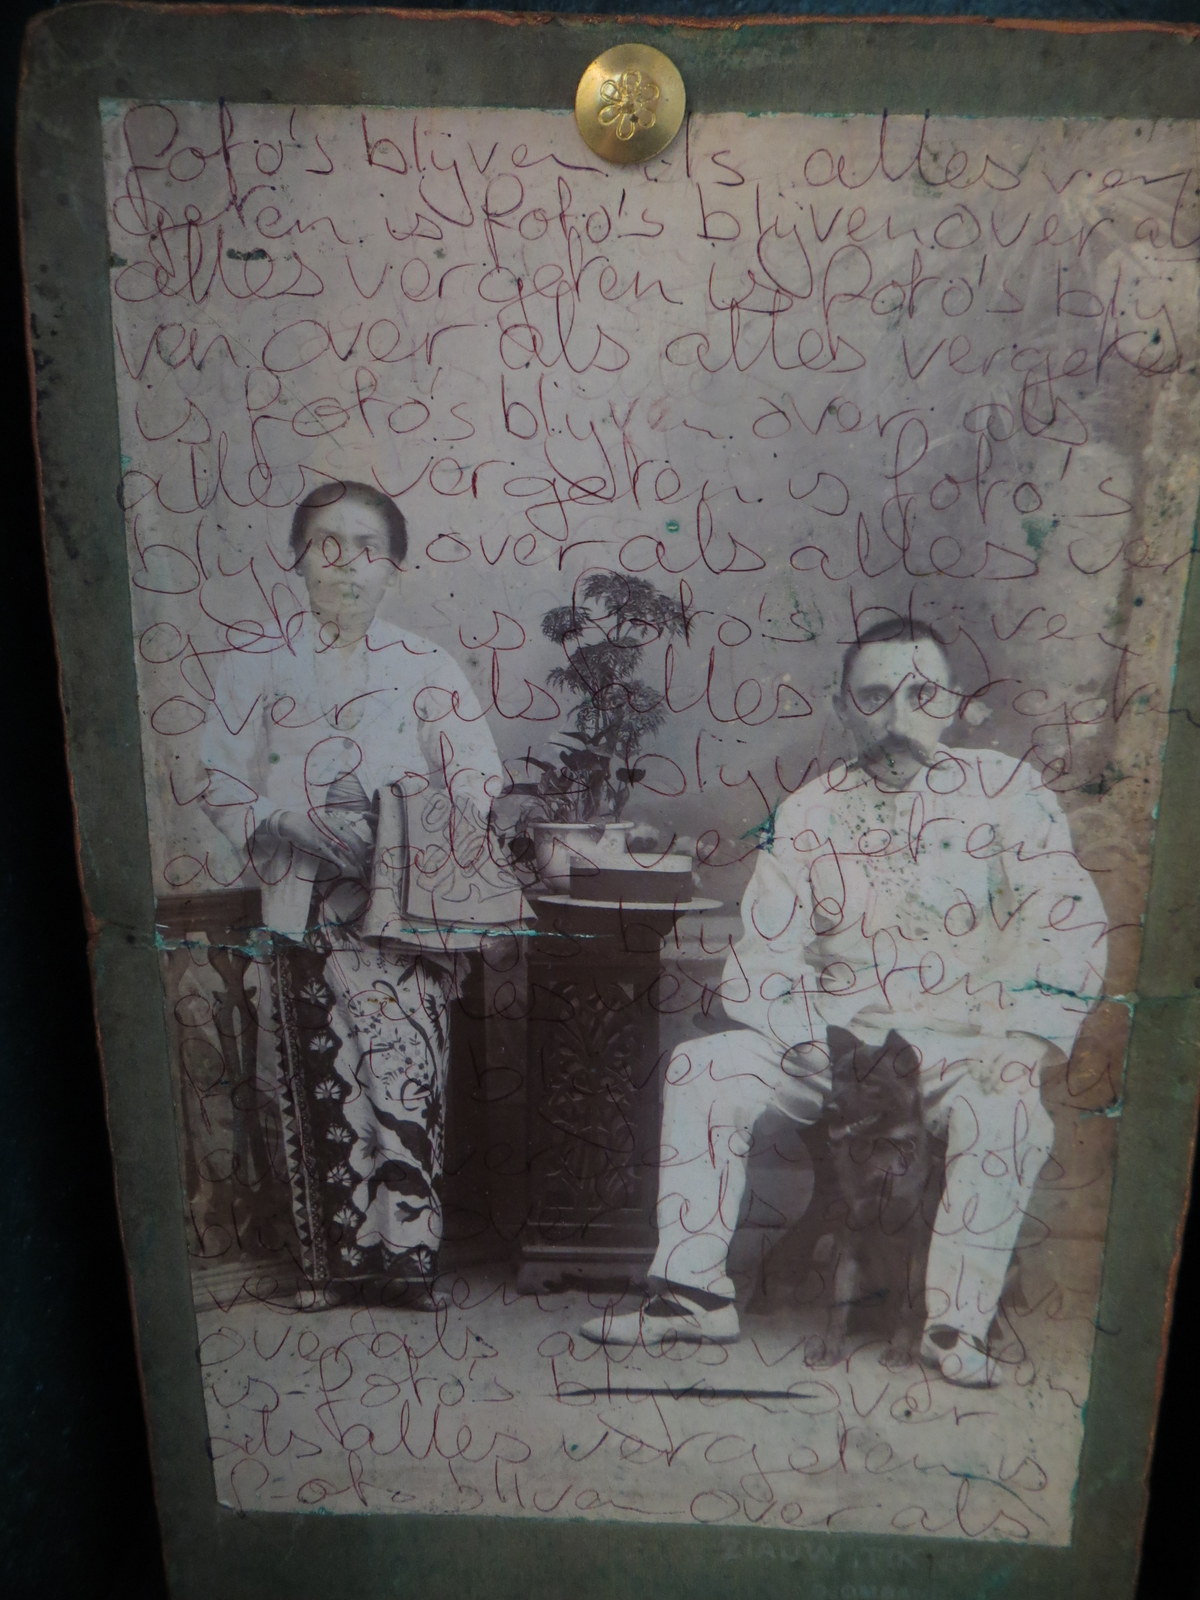 Foto's blijven als alles ver
geten is foto's blijven over als
alles vergeten is foto's blij
ven over als alles vergeten
is foto's blijven over als
alles vergeten is foto's
blijven over als alles ver
geten is foto's blijven
over als alles vergeten
is foto's blijven over
als alles vergeten
is foto's blijven over
als alles vergeten is
foto's blijven over als
alles vergeten is foto's
blijven over als alles
vergeten is foto's blijven
over als alles vergeten
is foto's blijven over
als alles vergeten is
Foto blijven over als
ZIAUW